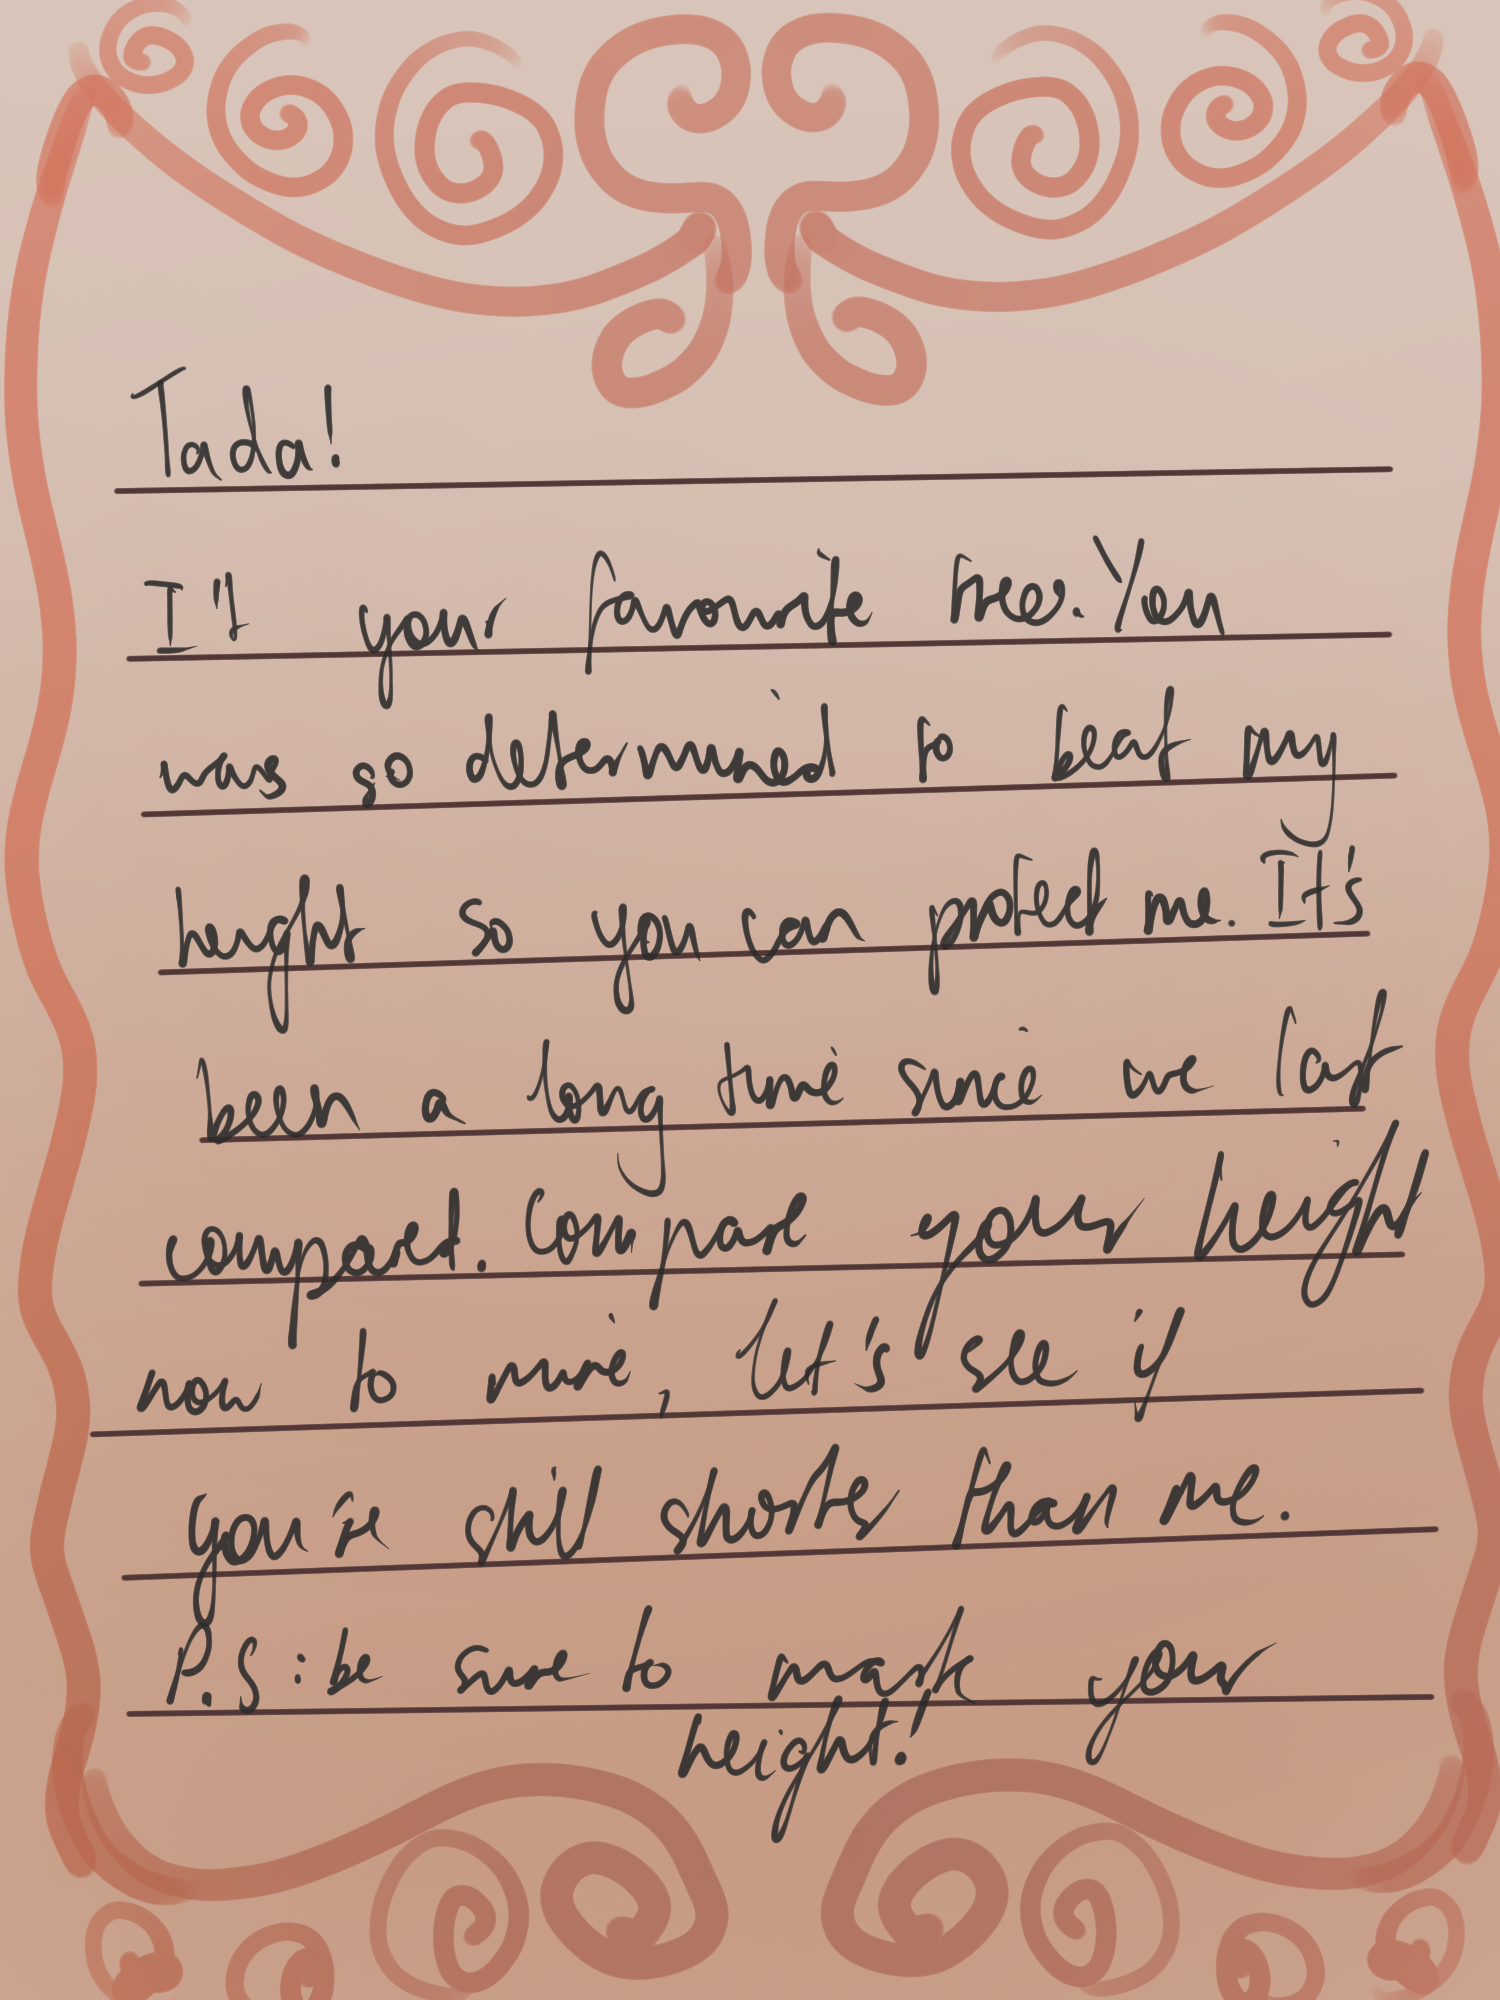 Tada!
It your favourite tree. You
was so determined to beat my
height so you can protect me. It's
been a long time since we last
compared. Compare your height
now to mine, let's see if
you're still shorter than me.
P.S: be sure to mark your
height!